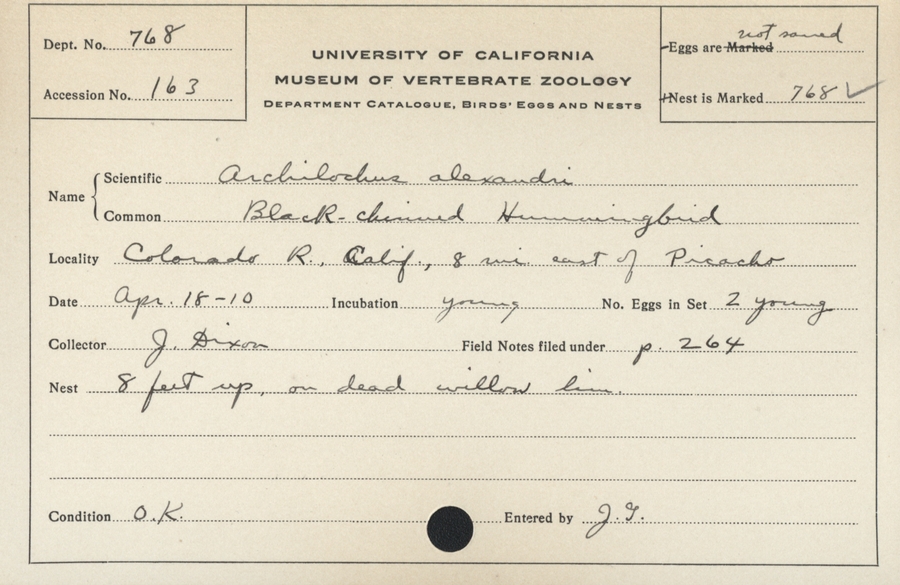 Dept. No. 768
Accession No. 163
UNIVERSITY OF CALIFORNIA
MUSEUM OF VERTEBRATE ZOOLOGY
DEPARTMENT CATALOGUE, BIRDS' EGGS AND NESTS
not saved
Eggs are Marked
Nest is Marked 768 ✓
Name
Scientific Archilochus alexandri
Common Black-chinned Hummingbird
Locality Colorado R., Calif., 8 mi. east of Picacho
Date Apr. 18-10 Incubation young No. Eggs in Set 2 young
Collector J. Dixon Field Notes filed under p. 264
Nest 8 feet up, on dead willow lim.
Condition O.K. Entered by J.G.